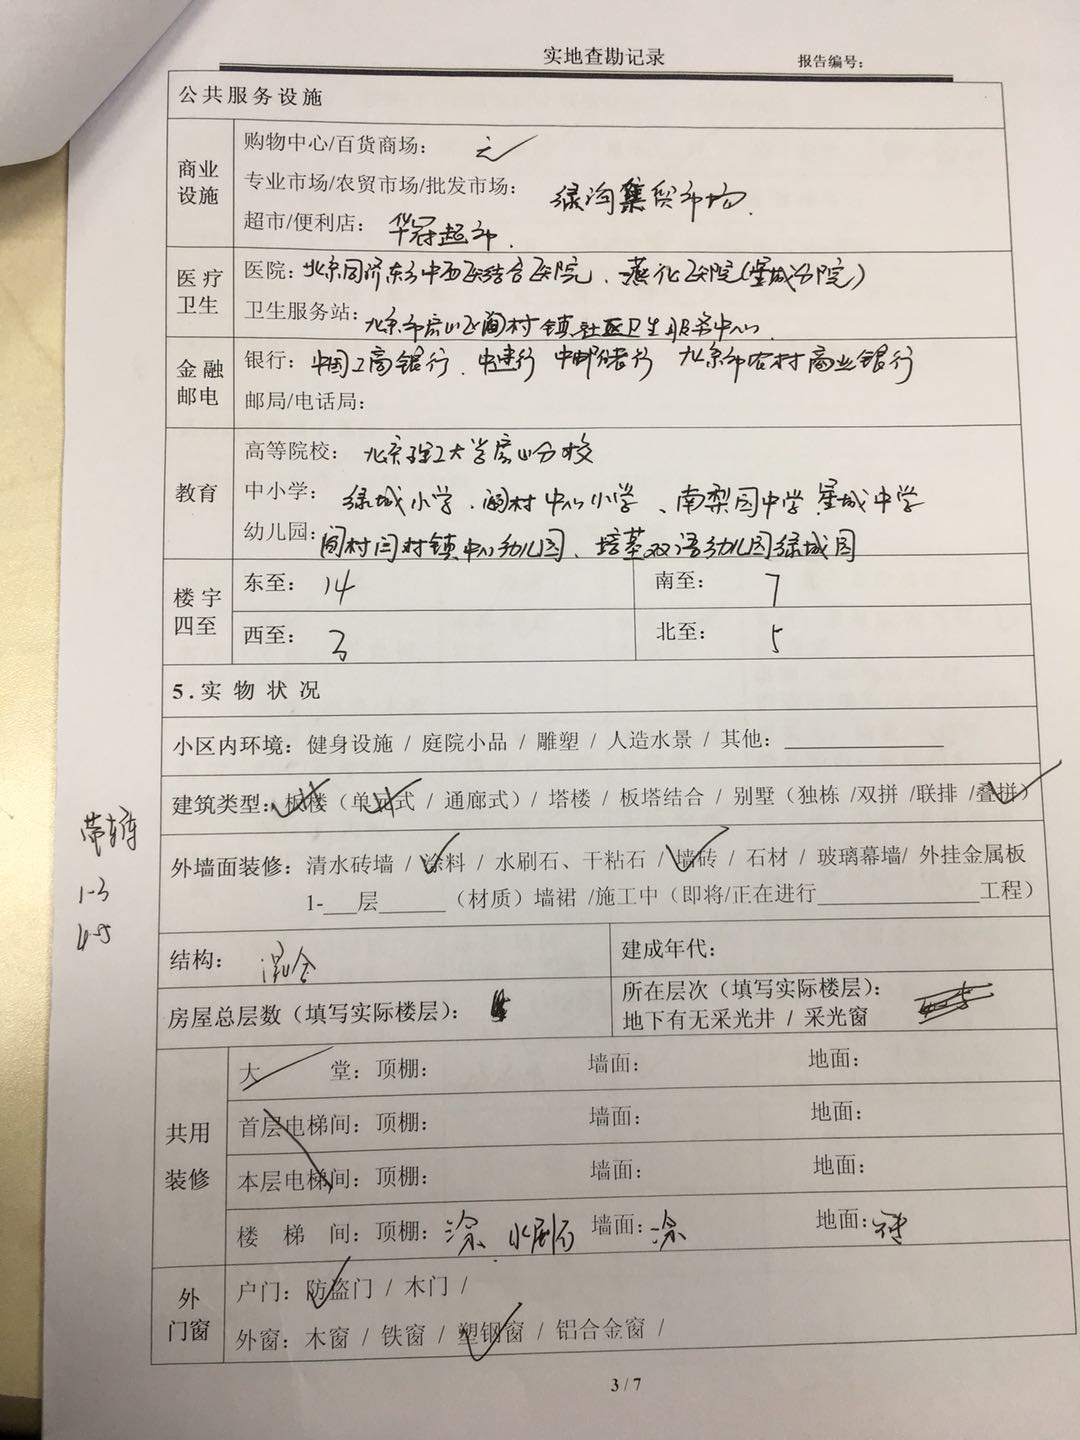 实地查勘记录 报告编号：
公共服务设施
商业设施
购物中心/百货商场： 无
专业市场/农贸市场/批发市场： 绿洵集贸市场.
超市/便利店： 华冠超市.
医疗卫生
医院：北京同济东方中西医结合医院、燕化医院(星城分院)
卫生服务站：北京市房山区阎村镇社区卫生服务中心
金融邮电
银行：中国工商银行、中建行 中邮储行 北京市农村商业银行
邮局/电话局：
教育
高等院校： 北京理工大学房山分校
中小学： 绿城小学、阎村中心小学、南梨园中学 星城中学
幼儿园：阎村闫村镇中心幼儿园、培基双语幼儿园绿城园
楼宇四至
东至： 14 南至： 7
西至： 3 北至： 5
5.实物状况
小区内环境：健身设施 / 庭院小品 / 雕塑 / 人造水景 / 其他：
建筑类型：板楼（单元式 / 通廊式）/ 塔楼 / 板塔结合 / 别墅（独栋 /双拼 /联排 /叠拼）
外墙面装修：清水砖墙 / 涂料 / 水刷石、干粘石 / 墙砖 / 石材 / 玻璃幕墙/ 外挂金属板
1-___层______（材质）墙裙 /施工中（即将/正在进行______________工程）
1-3
4-5
结构： 混合 建成年代：
房屋总层数（填写实际楼层）： 所在层次（填写实际楼层）：
地下有无采光井 / 采光窗
共用装修
大堂：顶棚： 墙面： 地面：
首层电梯间：顶棚： 墙面： 地面：
本层电梯间：顶棚： 墙面： 地面：
楼梯间：顶棚：涂 水刷石 墙面：涂 地面：
外门窗
户门：防盗门 / 木门 /
外窗：木窗 / 铁窗 / 塑钢窗 / 铝合金窗 /
3 / 7